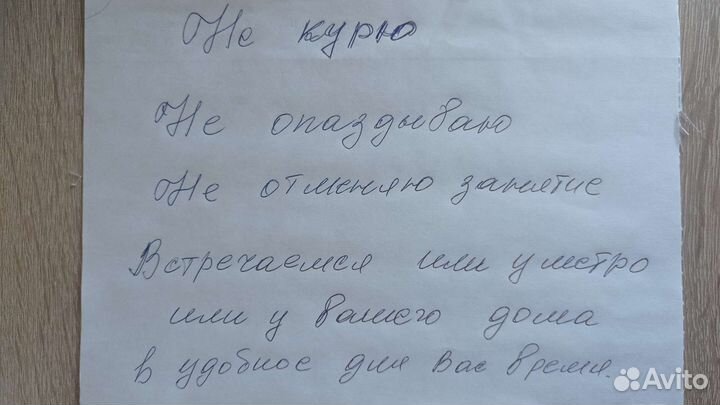 Не курю
Не опаздываю
Не отменяю занятие
Встречаемся или у метро
или у вашего дома
в удобное для Вас время.
Avito